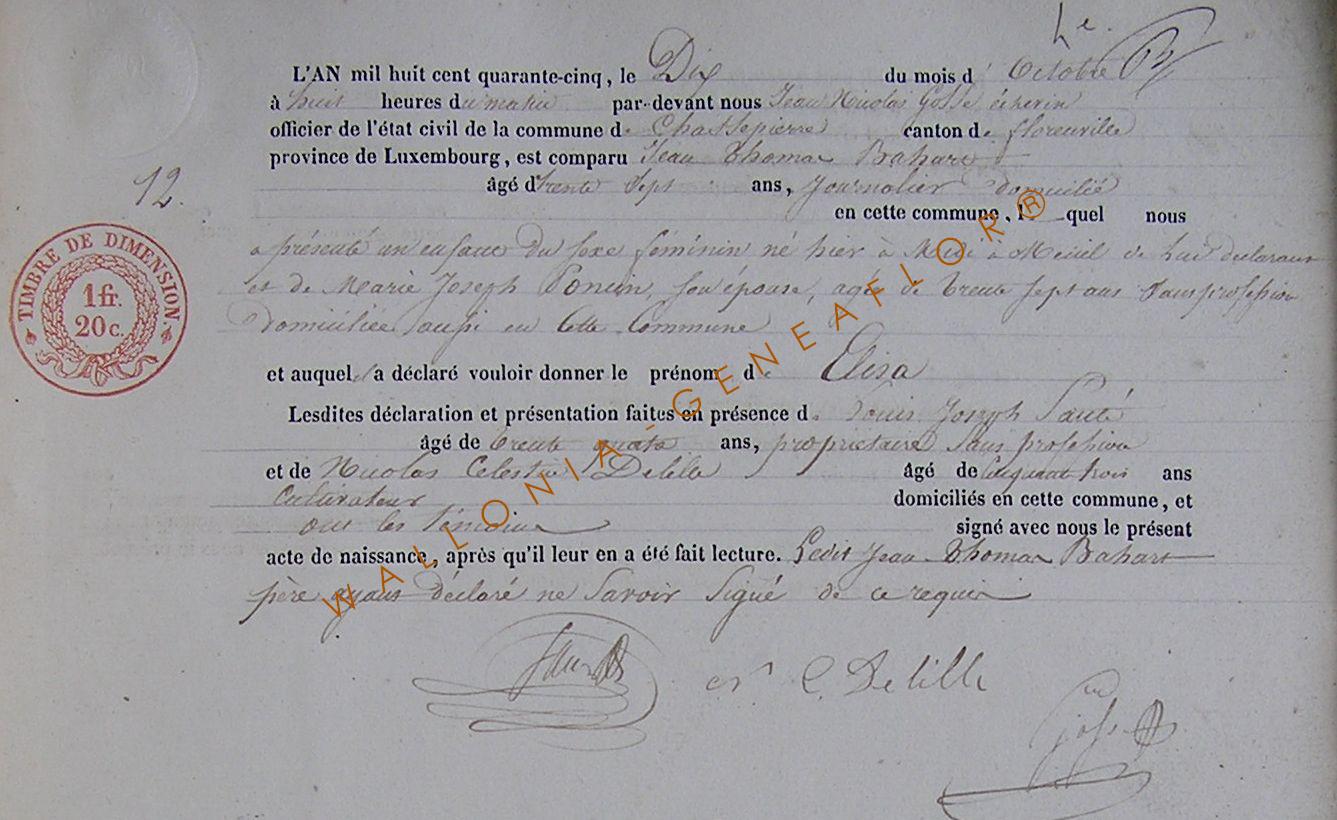 L'AN mil huit cent quarante-cinq, le Dix du mois d' Octobre
à huit heures du matin par-devant nous Jean Nicolas Gosse échevin
officier de l'état civil de la commune de Chassepierre canton de florenville
province de Luxembourg, est comparu Jean Thomas Bahart
12.
âgé de trente Sept ans, Journalier domicilié
en cette commune, l quel nous
a présenté un enfant du sexe féminin né hier à Midi à de Lui déclarant
et de Marie Joseph Poncin, son épouse, agée de trente sept ans Sans profession
domiciliée aussi en Cette Commune
TIMBRE DE DIMENSION.
1 fr.
20 c.
et auquel il a déclaré vouloir donner le prénom de Elisa
Lesdites déclaration et présentation faites en présence de Louis Joseph
âgé de trente quatre ans, propriétaire Sans profession
et de Nicolas Celestin Delille âgé de cinquante trois ans
Cultivateur domiciliés en cette commune, et
ont les témoins signé avec nous le présent
acte de naissance, après qu'il leur en a été fait lecture. Ledit Jean Thomas Bahart
père ayant déclaré ne Savoir Signé de ce requis
C. Delille
Gosse
WALLONIA-GENEAFLOR®